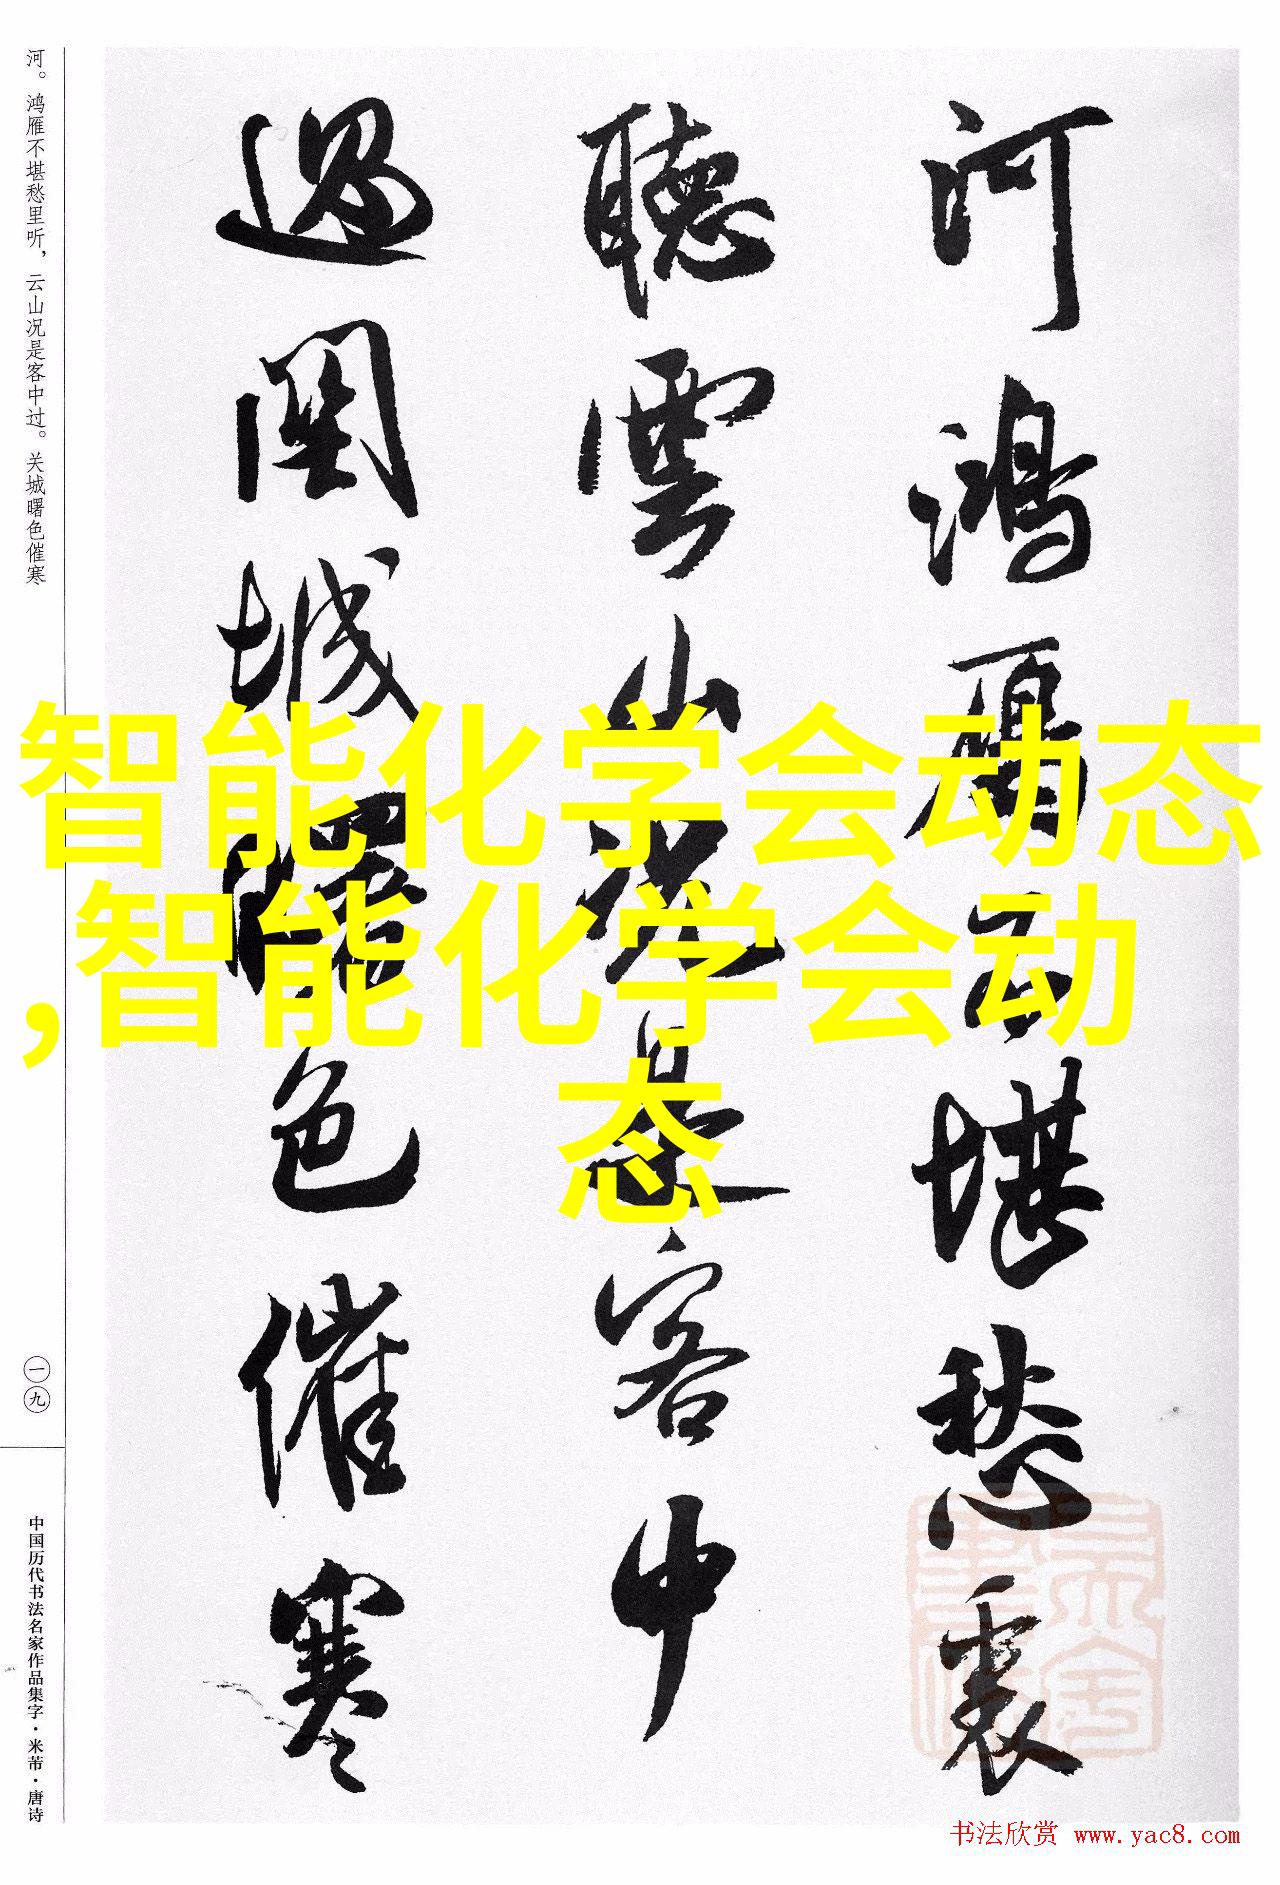 河鴻雁不堪愁裏
聽雲山況是客中
過關城曙色催寒
河。鸿雁不堪愁里听，云山况是客中过。关城曙色催寒
一九
中国历代书法名家作品集字·米芾·唐诗
智能化学会动态
,智能化学会动
态
书法欣赏 www.yac8.com